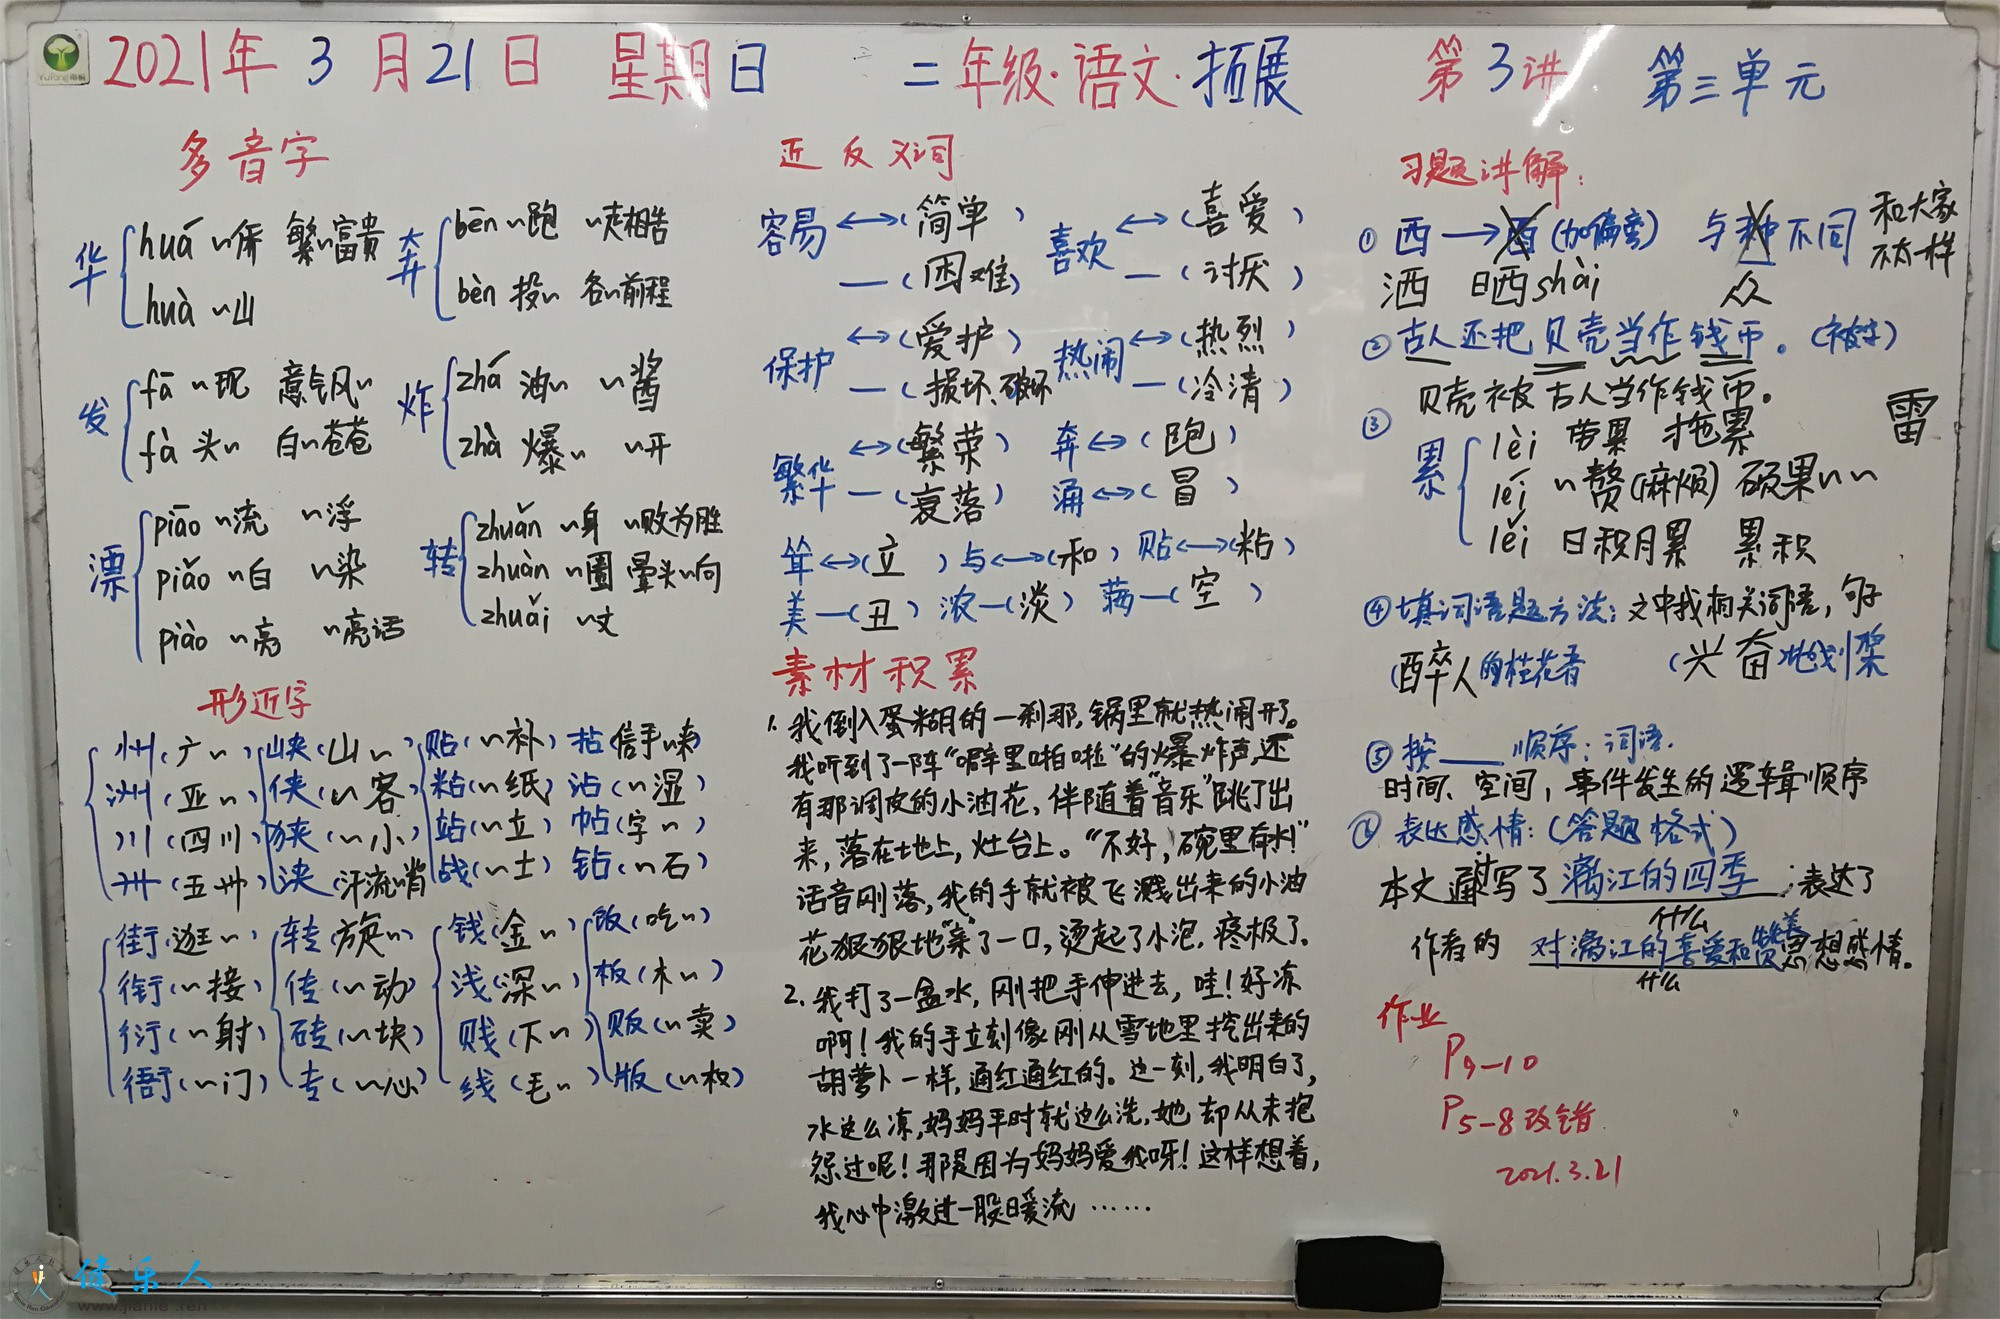 2021年3月21日 星期日 二年级·语文·拓展 第3讲 第三单元
多音字
华 huá ~侨 繁~富贵
huà ~山
奔 bēn ~跑 ~走相告
bèn 投~ 各~前程
发 fā ~现 意气风~
fà 头~ 白~苍苍
炸 zhá 油~ ~酱
zhà 爆~ ~开
漂 piāo ~流 ~浮
piǎo ~白 ~染
piào ~亮 ~亮话
转 zhuǎn ~身 ~败为胜
zhuàn ~圈 晕头~向
zhuǎi ~文
形近字
州(广~) 峡(山~) 贴(~补) 拈(信手~来)
洲(亚~) 侠(~客) 粘(~纸) 沾(~湿)
川(四川) 狭(~小) 站(~立) 帖(字~)
卅(五卅) 浃(汗流~背) 战(~士) 钻(~石)
街(逛~) 转(旋~) 钱(金~) 饭(吃~)
衔(~接) 传(~动) 浅(深~) 板(木~)
衍(~射) 砖(~块) 贱(下~) 贩(~卖)
衙(~门) 专(~心) 线(毛~) 版(~权)
近反义词
容易 ↔(简单) 喜欢 ↔(喜爱)
—(困难) —(讨厌)
保护 ↔(爱护) 热闹 ↔(热烈)
—(损坏、破坏) —(冷清)
繁华 ↔(繁荣) 奔↔(跑)
—(衰落) 涌↔(冒)
耸↔(立) 与↔(和) 贴↔(粘)
美—(丑) 浓—(淡) 满—(空)
素材积累
1. 我倒入蛋糊的一刹那,锅里就热闹开了。
我听到了一阵“噼里啪啦”的爆炸声,还
有那调皮的小油花,伴随着“音乐”跳了出
来,落在地上,灶台上。“不好,碗里有水!”
话音刚落,我的手就被飞溅出来的小油
花狠狠地“亲”了一口,烫起了小泡,疼极了。
2. 我打了一盆水,刚把手伸进去,哇!好冻
啊!我的手立刻像刚从雪地里挖出来的
胡萝卜一样,通红通红的。这一刻,我明白了,
水这么冻,妈妈平时就这么洗,她却从未抱
怨过呢!那是因为妈妈爱我呀!这样想着,
我心中激进一股暖流……
习题讲解:
① 西→(加偏旁) 与 不同 和大家
不太一样
洒 晒shài 众
② 古人还把贝壳当作钱币。(被字)
贝壳被古人当作钱币。
③ 累 lèi 带累 拖累 雷
léi ~赘(麻烦) 硕果~~
lěi 日积月累 累积
④ 填词语题方法:文中找相关词语,句子
(醉人)的桂花香 (兴奋)地划桨
⑤ 按____顺序:词语.
时间、空间,事件发生的逻辑顺序
⑥ 表达感情:(答题格式)
本文通过写了漓江的四季;表达了
什么
作者的 对漓江的喜爱和赞美思想感情。
什么
作业
P9-10
P5-8改错
2021.3.21
健乐人
www.jianle.ren